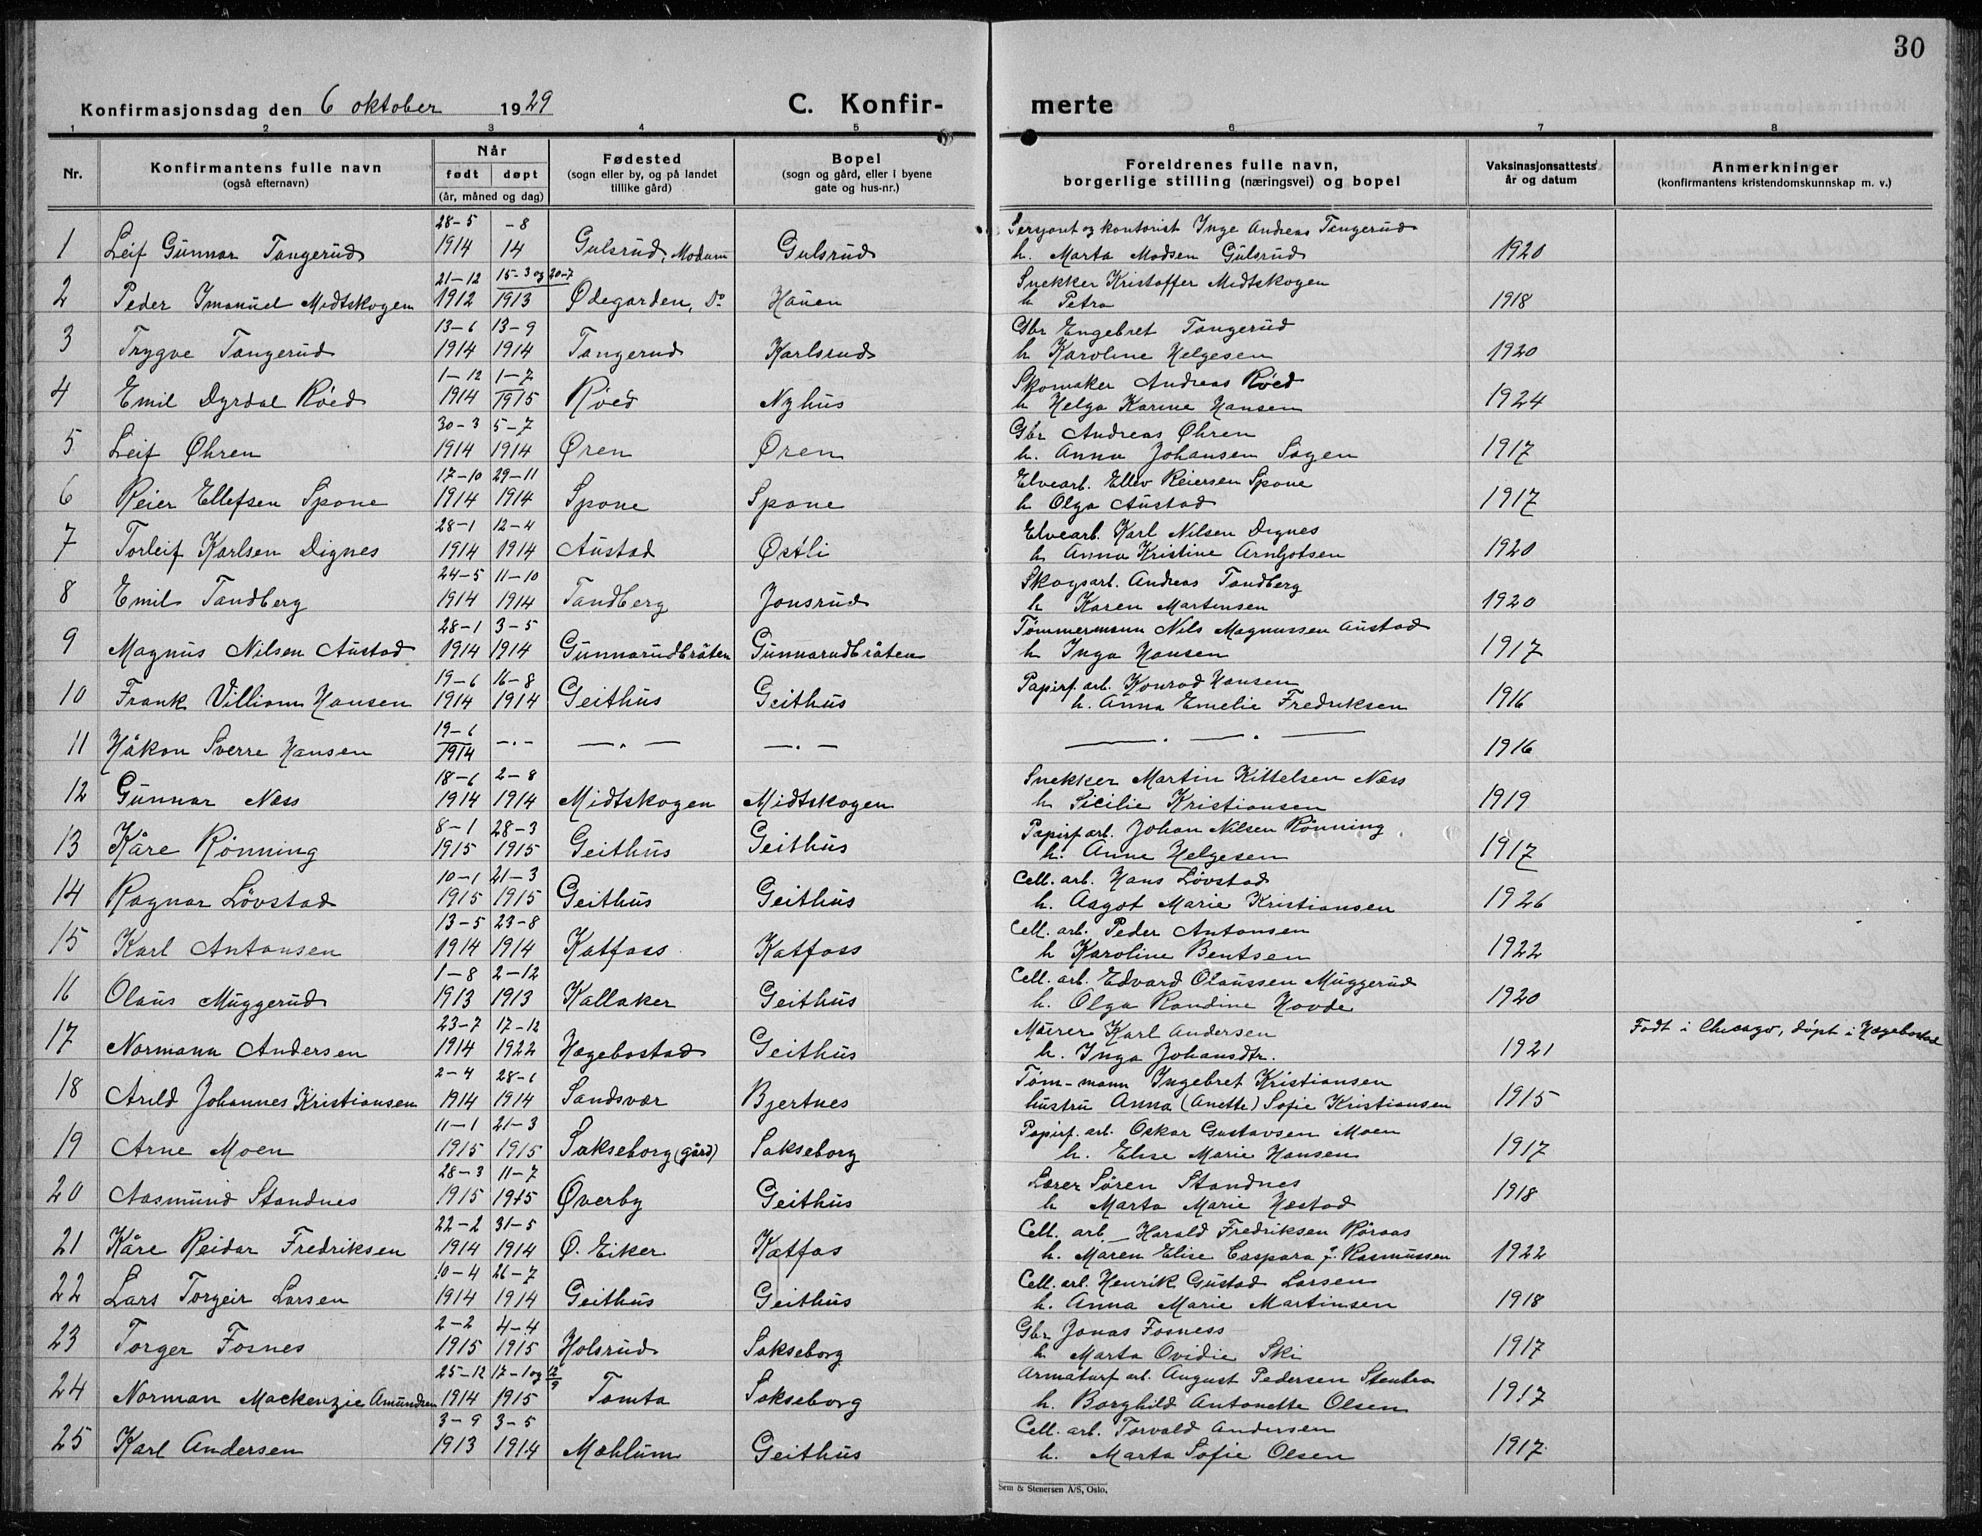 30
Konfirmasjonsdag den 6 oktober 1929
C. Konfir-
merte
1 2 3 4 5 6 7 8
Nr.
Konfirmantens fulle navn
(også efternavn)
Når
født døpt
(år, måned og dag)
Fødested
(sogn eller by, og på landet
tillike gård)
Bopel
(sogn og gård, eller i byene
gate og hus-nr.)
Foreldrenes fulle navn,
borgerlige stilling (næringsvei) og bopel
Vaksinasjonsattests
år og datum
Anmerkninger
(konfirmantens kristendomskunnskap m. v.)
28-5 -8 Sersjant og kontorist Inge Andreas Tangerud
1 Leif Gunnar Tangerud 1914 14 Gulsrud, Modum Gulsrud h. Marta Madsen Gulsrud 1920
21-12 15-3 og 20-7 Snekker Kristoffer Midtskogen
2 Peder Imanuel Midtskogen 1912 1913 Ødegarden, Do Hauen h Petra 1918
13-6 13-9 Gbr Engebret Tangerud
3 Trygve Tangerud 1914 1914 Tangerud Karlsrud h Karoline Helgesen 1920
1-12 1-7 Skomaker Andreas Røed
4 Emil Dyrdal Røed 1914 1915 Røed Nyhus h Helga Karine Hansen 1924
30-3 5-7 Gbr Andreas Øhren
5 Leif Øhren 1914 1914 Øren Øren h. Anna Johansen Sagen 1917
17-10 29-11 Elvearb. Ellev Reiersen Spone
6 Reier Ellefsen Spone 1914 1914 Spone Spone h Olga Austad 1917
28-1 12-4 Elvearb. Karl Nilsen Dignes
7 Torleif Karlsen Dignes 1914 1914 Austad Østli h Anna Kristine Arnljotsen 1920
24-5 11-10 Skogsarb. Andreas Tandberg
8 Emil Tandberg 1914 1914 Tandberg Jonsrud h Karen Martinsen 1920
28-1 3-5 Tømmermann Nils Magnussen Austad
9 Magnus Nilsen Austad 1914 1914 Gunnarudbråten Gunnarudbråten h Inga Hansen 1917
19-6 16-8 Papirf. arb. Konrad Hansen
10 Frank Villiam Hansen 1914 1914 Geithus Geithus h. Anna Emelie Fredriksen 1916
19-6
11 Håkon Sverre Hansen 1914 -.- -.- -.- -.-.- 1916
18-6 2-8 Snekker Martin Kittelsen Næss
12 Gunnar Næss 1914 1914 Midtskogen Midtskogen h Sicilie Kristiansen 1919
8-1 28-3 Papirf arb. Johan Nilsen Rønning
13 Kåre Rønning 1915 1915 Geithus Geithus h. Anne Helgesen 1917
10-1 21-3 Cell. arb. Hans Løvstad
14 Ragnar Løvstad 1915 1915 Geithus Geithus h. Aagot Marie Kristiansen 1926
13-5 23-8 Cell. arb. Peder Antonsen
15 Karl Antonsen 1914 1914 Katfoss Katfoss h Karoline Bentsen 1922
1-8 2-12 Cell. arb. Edvard Olaussen Muggerud
16 Olaus Muggerud 1913 1913 Kallaker Geithus h. Olga Randine Hovde 1920
23-7 17-12 Murer Karl Andersen Født i Chicago, døpt i Hægebostad
17 Normann Andersen 1914 1922 Hægebostad Geithus h. Inga Johansdtr. 1921
2-4 28-6 Tøm-mann Ingebret Kristiansen
18 Arild Johannes Kristiansen 1914 1914 Sandsvær Bjertnes hustru Anna (Anette) Sofie Kristiansen 1915
11-1 21-3 Papirf. arb. Oskar Gustavsen Moen
19 Arne Moen 1915 1915 Sakseborg (gård) Sakseborg h. Elise Marie Hansen 1917
28-3 11-7 Lærer Søren Standnes
20 Aasmund Standnes 1915 1915 Øverby Geithus h Marta Marie Hæstad 1918
22-2 31-5 Cell. arb. Harald Fredriksen Røraas
21 Kåre Reidar Fredriksen 1914 1914 Ø. Eiker Katfos h. Maren Elise Caspara f. Rasmussen 1922
10-4 26-7 Cell. arb. Henrik Gustad Larsen
22 Lars Torgeir Larsen 1914 1914 Geithus Geithus h. Anna Marie Martinsen 1918
2-2 4-4 Gbr Jonas Fosness
23 Torger Fosnes 1915 1915 Holsrud Sakseborg h. Marta Ovidie Ski 1917
25-12 17-1 og 12/9 Armaturf arb. August Pedersen Stenbro
24 Norman Mackenzie Amundsen 1914 1915 Tomta Sakseborg h. Borghild Antonette Olsen 1917
3-9 3-5 Cell. arb. Torvald Andersen
25 Karl Andersen 1913 1914 Mæhlum Geithus h. Marta Sofie Olsen 1917.
Sem & Stenersen A/S, Oslo.